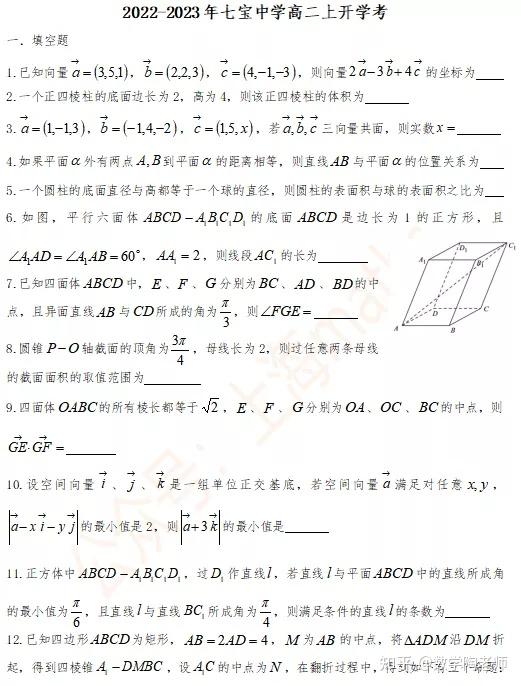 2022-2023年七宝中学高二上开学考
一．填空题
1.已知向量a⃗=(3,5,1)，b⃗=(2,2,3)，c⃗=(4,-1,-3)，则向量2a⃗-3b⃗+4c⃗的坐标为____
2.一个正四棱柱的底面边长为2，高为4，则该正四棱柱的体积为____
3.a⃗=(1,-1,3)，b⃗=(-1,4,-2)，c⃗=(1,5,x)，若a⃗,b⃗,c⃗三向量共面，则实数x=____
4.如果平面α外有两点A,B到平面α的距离相等，则直线AB与平面α的位置关系为____
5.一个圆柱的底面直径与高都等于一个球的直径，则圆柱的表面积与球的表面积之比为____
6.如图，平行六面体ABCD-A₁B₁C₁D₁的底面ABCD是边长为1的正方形，且
∠A₁AD=∠A₁AB=60°，AA₁=2，则线段AC₁的长为____
A₁ D₁ B₁ C₁ D C A B
7.已知四面体ABCD中，E、F、G分别为BC、AD、BD的中
点，且异面直线AB与CD所成的角为π/3，则∠FGE=____
8.圆锥P-O轴截面的顶角为3π/4，母线长为2，则过任意两条母线
的截面面积的取值范围为____
9.四面体OABC的所有棱长都等于√2，E、F、G分别为OA、OC、BC的中点，则
GE⃗·GF⃗=____
10.设空间向量i⃗、j⃗、k⃗是一组单位正交基底，若空间向量a⃗满足对任意x,y，
|a⃗-xi⃗-yj⃗|的最小值是2，则|a⃗+3k⃗|的最小值是____
11.正方体中ABCD-A₁B₁C₁D₁，过D₁作直线l，若直线l与平面ABCD中的直线所成角
的最小值为π/6，且直线l与直线BC₁所成角为π/4，则满足条件的直线l的条数为____
12.已知四边形ABCD为矩形，AB=2AD=4，M为AB的中点，将△ADM沿DM折
起，得到四棱锥A₁-DMBC，设A₁C的中点为N，在翻折过程中，得到如下有三个命题：
公众号：上海math
知乎 @数学陶老师